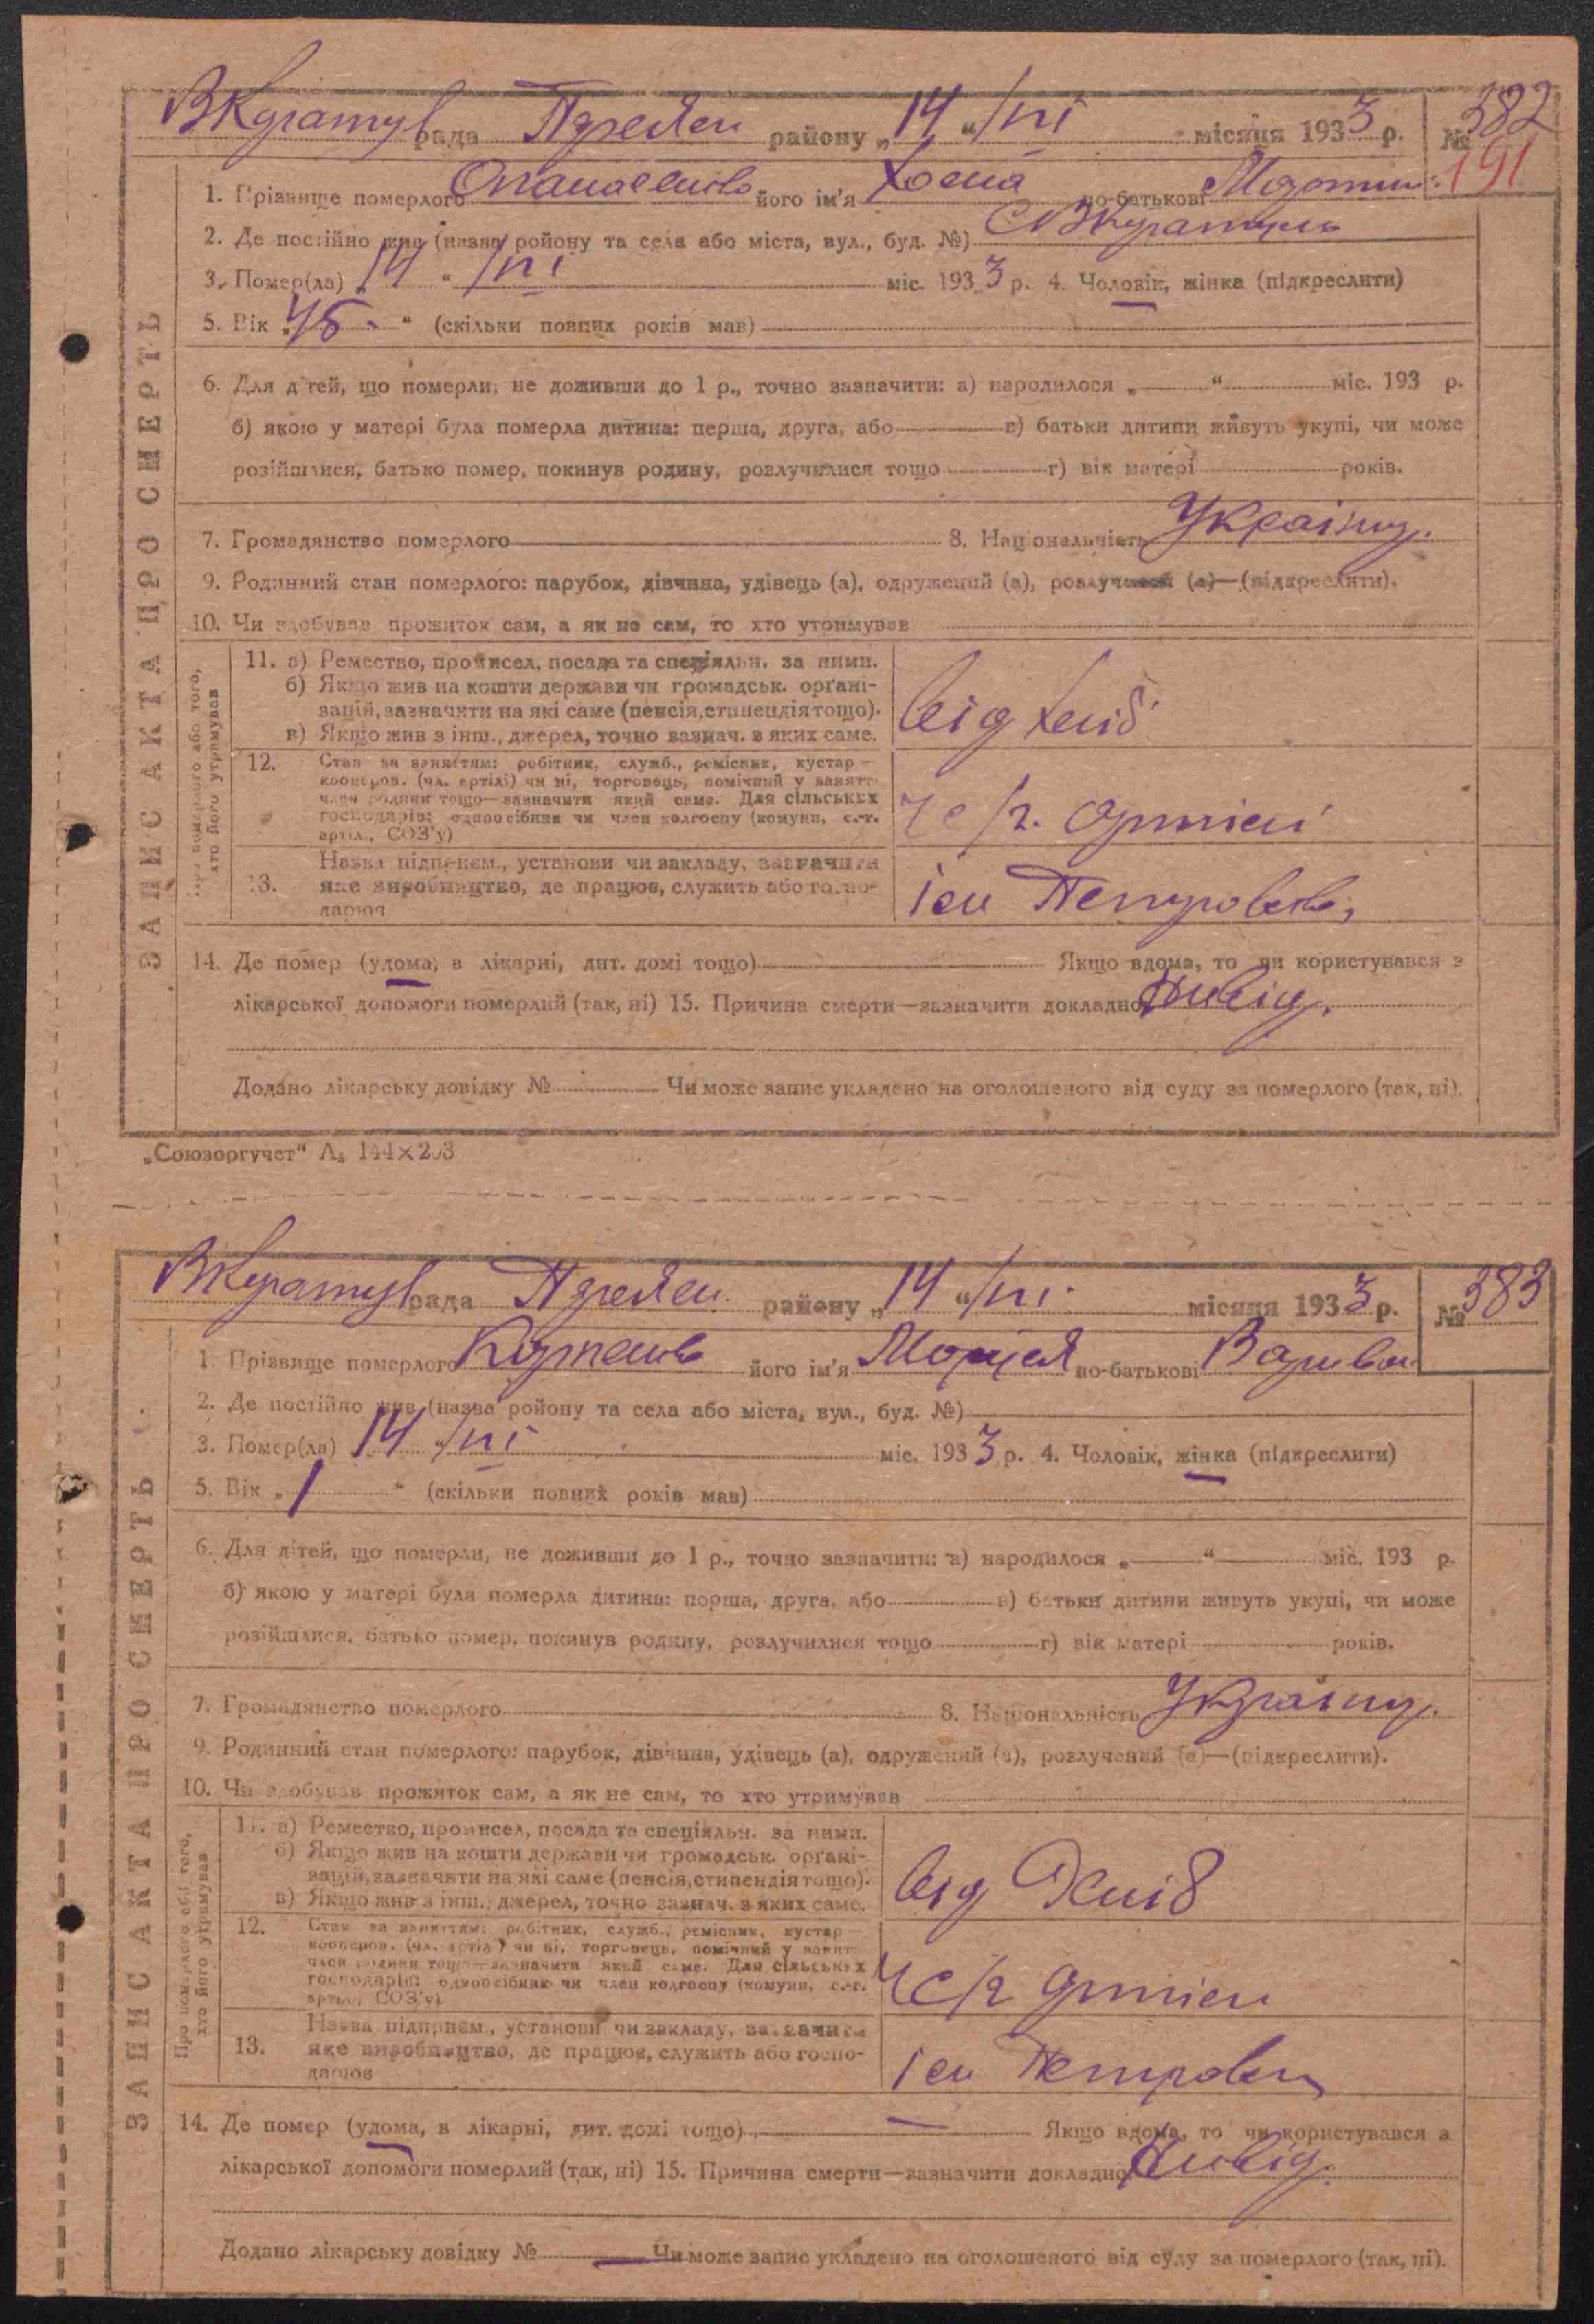 рада району „14“ /VI місяця 1933 р. № 382
191
1. Прізвище померлого його ім'я Хома по-батькові
2. Де постійно жив (назва ройону та села або міста, вул., буд. №)
3. Помер(ла) „14“ /VI міс. 1933 р. 4. Чоловік, жінка (підкреслити)
5. Вік „45“ (скільки повних років мав)
6. Для дітей, що померли, не доживши до 1 р., точно зазначити: а) народилося „ “ міс. 193 р.
б) якою у матері була померла дитина: перша, друга, або в) батьки дитини живуть укупі, чи може
розійшлися, батько помер, покинув родину, розлучилися тощо г) вік матері років.
7. Громадянство померлого 8. Національність Україн.
9. Родинний стан померлого: парубок, дівчина, удівець (а), одружений (а), розлучений (а)—(підкреслити).
10. Чи здобував прожиток сам, а як не сам, то хто утримував
Про померлого або того,
хто його утримував
11. а) Ремество, промисел, посада та спеціяльн. за ними.
б) Якщо жив на кошти держави чи громадськ. органі-
зацій, зазначити на які саме (пенсія, стипендія тощо).
в) Якщо жив з інш., джерел, точно зазнач. з яких саме.
від хліб
12. Стан за заняттям: робітник, служб., ремісник, кустар—
кооперов. (чл. артілі) чи ні, торговець, помічний у занятт.
член родини тощо—зазначити який саме. Для сільських
господарів: одноосібник чи член колгоспу (комуни, с.-г.
артіл., СОЗ'у)
Ч с/г. артілі
13. Назва підприєм., установи чи закладу, зазначити
яке виробництво, де працює, служить або госпо-
дарює
ім Петровськ
14. Де помер (удома, в лікарні, дит. домі тощо) Якщо вдома, то чи користувався з
лікарської допомоги померлий (так, ні) 15. Причина смерти—зазначити докладно
Додано лікарську довідку № Чи може запис укладено на оголошеного від суду за померлого (так, ні).
ЗАПИС АКТА ПРО СМЕРТЬ
„Союзоргучет“ А₅ 144×203
рада району „14“ /VI місяця 1933 р. № 383
1. Прізвище померлого його ім'я по-батькові
2. Де постійно жив (назва ройону та села або міста, вул., буд. №)
3. Помер(ла) 14 /VI міс. 1933 р. 4. Чоловік, жінка (підкреслити)
5. Вік „1“ (скільки повних років мав)
6. Для дітей, що померли, не доживши до 1 р., точно зазначити: а) народилося „ “ міс. 193 р.
б) якою у матері була померла дитина: перша, друга, або в) батьки дитини живуть укупі, чи може
розійшлися, батько помер, покинув родину, розлучилися тощо г) вік матері років.
7. Громадянство померлого 8. Національність Україн.
9. Родинний стан померлого: парубок, дівчина, удівець (а), одружений (а), розлучений (а)—(підкреслити).
10. Чи здобував прожиток сам, а як не сам, то хто утримував
Про померлого або того,
хто його утримував
11. а) Ремество, промисел, посада та спеціяльн. за ними.
б) Якщо жив на кошти держави чи громадськ. органі-
зацій, зазначити на які саме (пенсія, стипендія тощо).
в) Якщо жив з інш., джерел, точно зазнач. з яких саме.
від хліб
12. Стан за заняттям: робітник, служб., ремісник, кустар—
кооперов. (чл. артіл.) чи ні, торговець, помічний у занятт.
член родини тощо—зазначити який саме. Для сільських
господарів: одноосібник чи член колгоспу (комуни, с.-г.
артіл., СОЗ'у)
Ч с/г артілі
13. Назва підприєм., установи чи закладу, зазначити
яке виробництво, де працює, служить або госпо-
дарює
ім Петровськ
14. Де помер (удома, в лікарні, дит. домі тощо) Якщо вдома, то чи користувався з
лікарської допомоги померлий (так, ні) 15. Причина смерти—зазначити докладно
Додано лікарську довідку № Чи може запис укладено на оголошеного від суду за померлого (так, ні).
ЗАПИС АКТА ПРО СМЕРТЬ